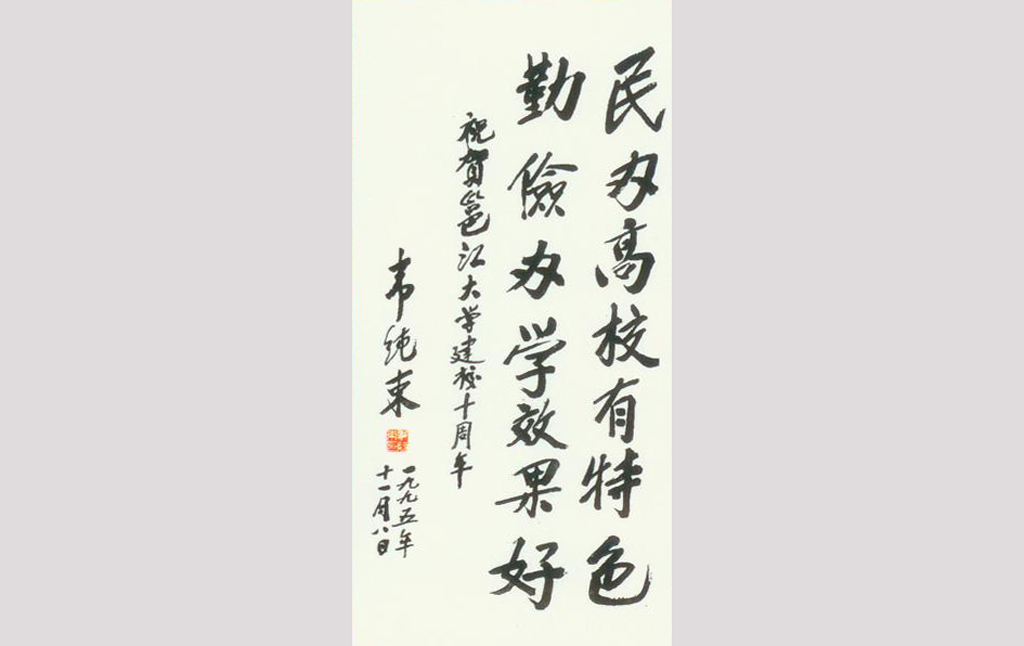 民办高校有特色
勤儉办学效果好
祝賀邕江大学建校十周年
韦纯束
一九九五年
十一月八日